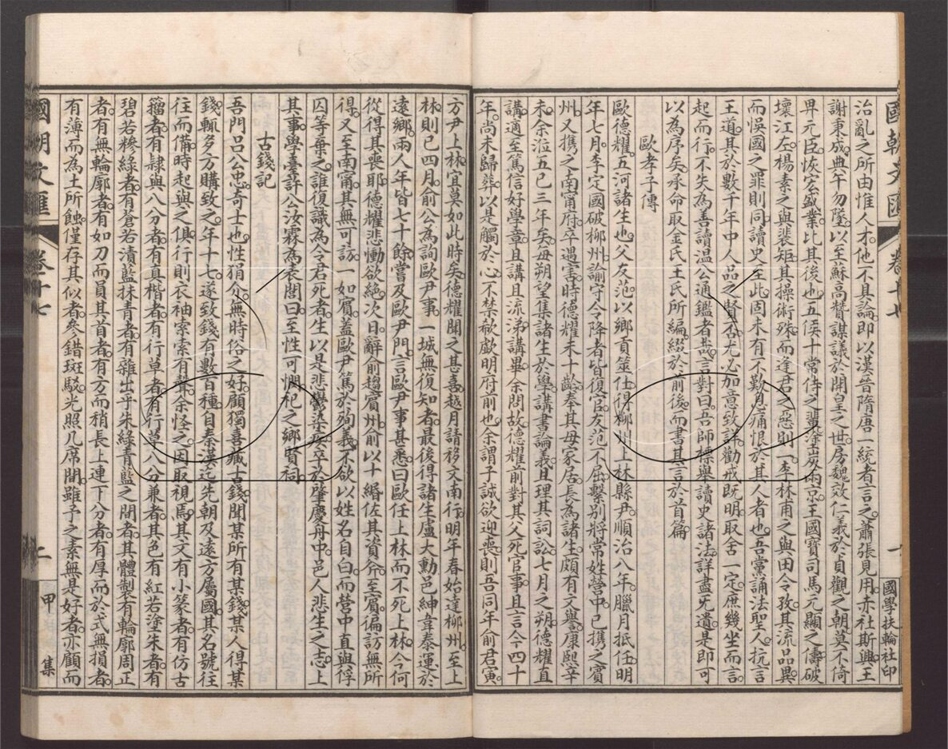 國朝文匯 卷十七 一 國學扶輪社印
治亂之所由惟人才他不具論即以漢晉隋唐一統者言之蕭張見用亦社斯與王
謝秉成典午勿墜以至蘇高贊謀議於開皇之世房魏效仁義於貞觀之朝莫不倚
畀元臣恢宏盛業比其後也五侯十常侍之輩塗炭兩京王國寶司馬元顯之儔破
壞江左楊素之與裴矩其操術殊而逢君之惡則一李林甫之與田令孜其流品異
而悞國之罪則同讀史至此固未有不歎息痛恨於其人者也吾黨誦法聖人抗言
王道其於數千年中人品之賢否尤必加意致詳勸戒既明取舍一定庶幾坐而言
起而行不失為善讀溫公通鑑者哉言對曰吾師標舉讀史諸法詳盡无遺是即可
以為序矣承命取金氏王氏所編綴於前後而書其言於首篇
歐孝子傳
歐德耀五河諸生也父友范以鄉貢筮仕得柳州上林縣尹順治八年臘月抵任明
年七月李定國破柳州諭守令降者皆復官友范不屈繫別將常姓營中已携之賓
州又携之南甯府卒遇害時德耀未十齡奉其母家居長為諸生頗有文譽康熙辛
未余涖五已三年矣每朔望集諸生於學講書論義且理其詞訟七月之朔德耀直
講適至篤信好學章且講且流涕講畢余問故德耀前對其父死官事且言今四十
年尚未歸葬以是觸於心不禁欷歔明府前也余謂子誠欲迎喪則吾同年前君寅
方尹上林宜莫如此時矣德耀聞之甚喜越月請移文南行明年春始達柳州至上
林則已四月俞公為詢歐尹事一城無復知者最後得諸生盧大勳邑紳韋泰運於
遠鄉兩人年皆七十餘嘗及歐尹門言歐尹事甚悉曰歐任上林而不死上林今何
從得其喪耶德耀悲慟欲絶次日辭俞趨賓州俞以十緡佐其資斧至屬徧訪無所
得又至南甯其無可訪一如賓蓋歐尹篤於殉義不欲以姓名自白而營中直與俘
囚等棄之誰復識為令君死者生以是悲鬱染疫卒於肇慶舟中邑人悲生之志上
其事學臺許公汝霖為表閭曰至性可憫祀之鄉賢祠
古錢記
吾門呂公忠奇士也性狷介無時俗之好顧獨喜藏古錢聞某所有某錢某人得某
錢輒多方購致之年十七遂致錢有數百種自秦漢迄先朝及遠方屬國其名號往
往而備時起與之俱行則衣袖索索有聲余怪之因取視焉其文有小篆者有仿古
籀者有隸與八分者有真楷者有行草者有行草八分兼者其色有紅若塗朱者有
碧若糝綠者有蒼若漬藍抹青者有雜出乎朱綠青藍之間者其體製有輪廓周正
者有無輪廓者有如刀而員其首者有方而稍長上連下分者有厚而於式無損者
有薄而為土所蝕僅存其似者參錯斑駁光照几席間雖予之素無是好者亦顧而
國朝文匯 卷十七 二 甲集